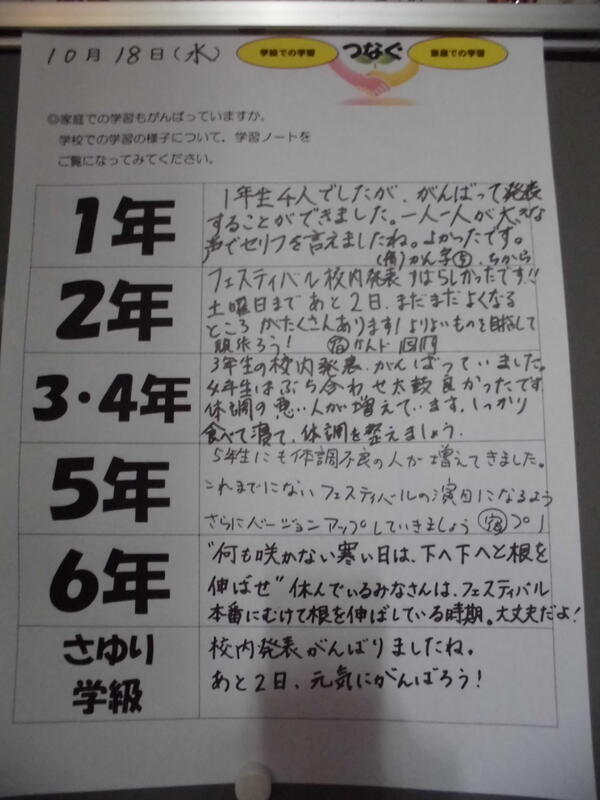 10月18日(水)
学校での学習 つなぐ 家庭での学習
◎家庭での学習もがんばっていますか。
学校での学習の様子について、学習ノートを
ご覧になってみてください。
1年
1年生4人でしたが、がんばって発表
することができました。一人一人が大きな
声でセリフを言えましたね。よかったです。
かん字 ちから
2年
フェスティバル校内発表 すばらしかったです!!
土曜日まで あと2日、まだまだよくなる
ところ がたくさんあります! よりよいものを目指して
頑張ろう! 宿 かんド
3・4年
3年生の校内発表、がんばっていました。
4年生はぶち合わせ太鼓良かったです
体調の悪い人が増えています。しっかり
食べて寝て、体調を整えましょう。
5年
5年生にも体調不良の人が増えてきました。
これまでにない フェスティバルの演目になるよう
さらにバージョンアップしていきましょう 宿 プリ
6年
"何も咲かない寒い日は、下へ下へと根を
伸ばせ" 休んでいるみなさんは、フェスティバル
本番にむけて根を伸ばしている時期。大丈夫だよ!
さゆり
学級
校内発表がんばりましたね。
あと2日、元気にがんばろう!